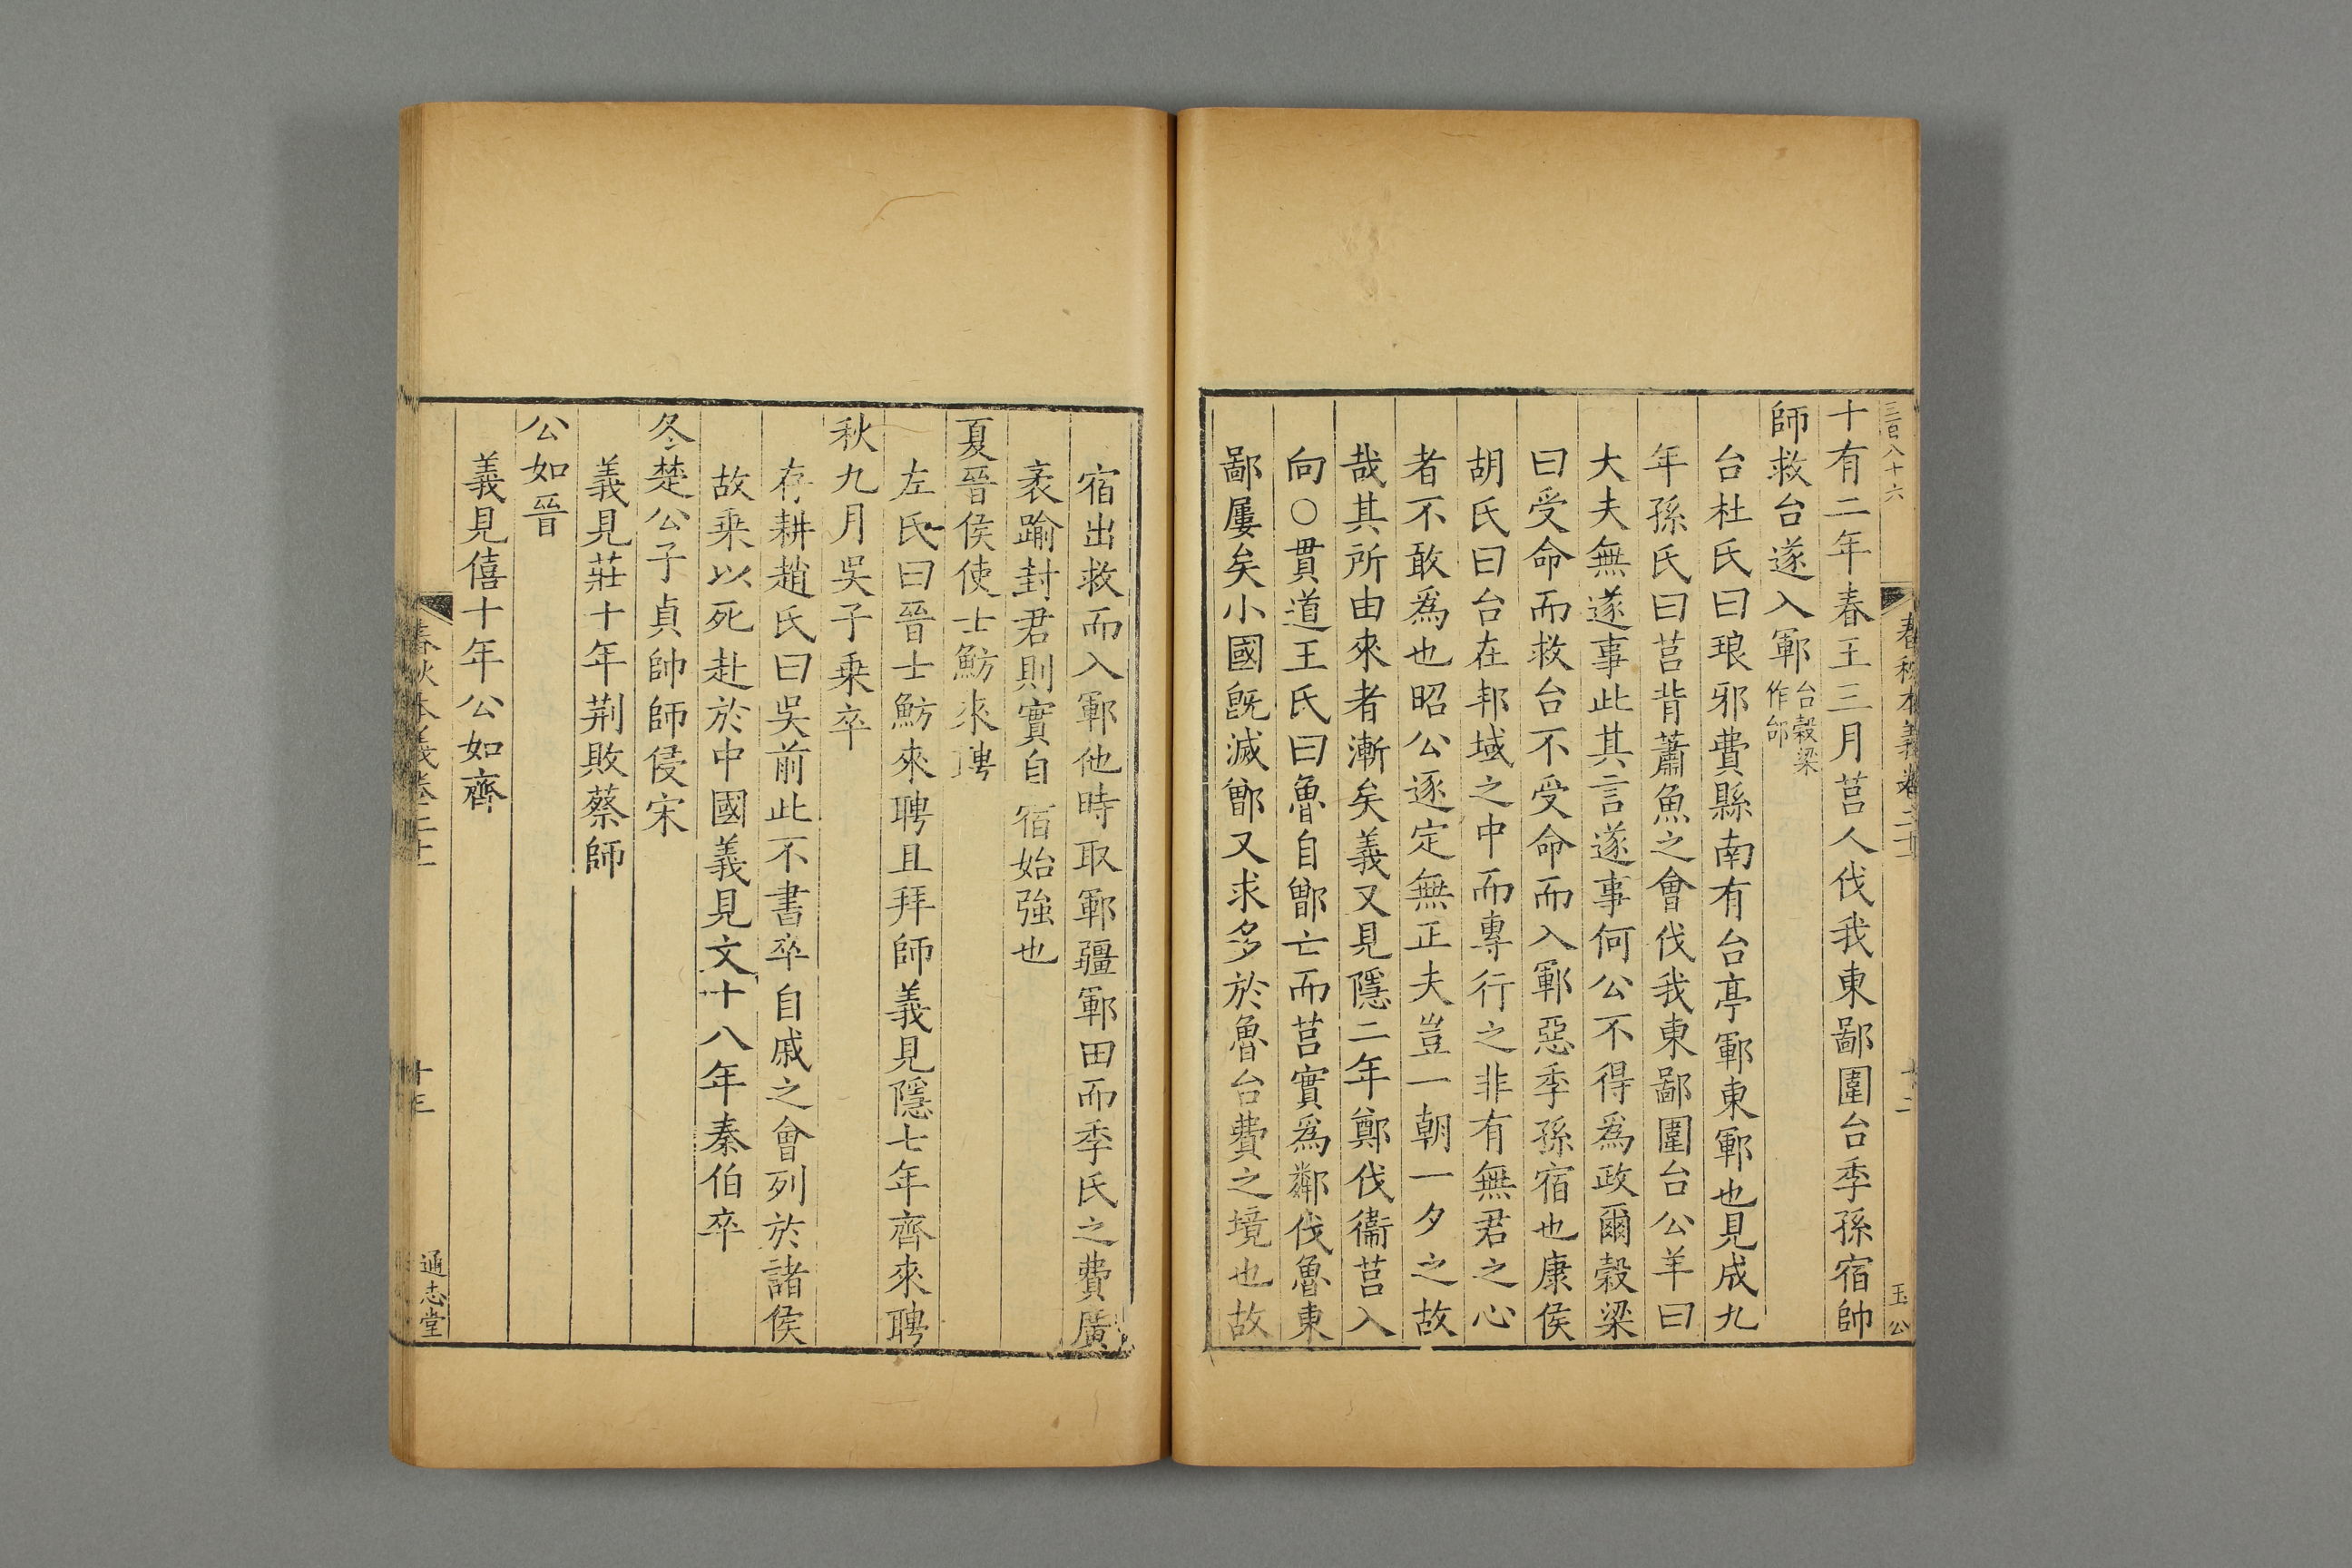 三百八十六
春秋本義卷二十一
十二
玉公
十有二年春王三月莒人伐我東鄙圍台季孫宿帥
師救台遂入鄆台穀梁作邰
台杜氏曰琅邪費縣南有台亭鄆東鄆也見成九
年孫氏曰莒背蕭魚之會伐我東鄙圍台公羊曰
大夫無遂事此其言遂事何公不得爲政爾穀梁
曰受命而救台不受命而入鄆惡季孫宿也康侯
胡氏曰台在邦域之中而專行之非有無君之心
者不敢爲也昭公逐定無正夫豈一朝一夕之故
哉其所由來者漸矣義又見隱二年鄭伐衞莒入
向○貫道王氏曰魯自鄫亡而莒實爲鄰伐魯東
鄙屢矣小國旣滅鄫又求多於魯台費之境也故
宿出救而入鄆他時取鄆疆鄆田而季氏之費廣
袤踰封君則實自宿始強也
夏晉侯使士魴來聘
左氏曰晉士魴來聘且拜師義見隱七年齊來聘
秋九月吳子乗卒
存耕趙氏曰吳前此不書卒自戚之會列於諸侯
故乗以死赴於中國義見文十八年秦伯卒
冬楚公子貞帥師侵宋
義見莊十年荆敗蔡師
公如晉
義見僖十年公如齊
春秋本義卷二十一
十三
通志堂